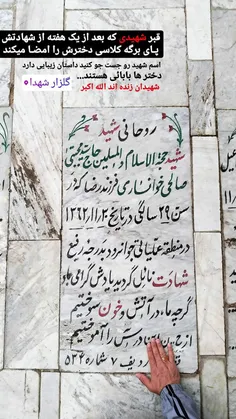 قبر شهیدی که بعد از یک هفته از شهادتش
پای برگه کلاسی دخترش را امضا میکند
اسم شهید رو جست جو کنید داستان زیبایی دارد
دختر ها بابائی هستند...
گلزار شهدا
شهیدان زنده اند الله اکبر
روحانی شهید
شهید حجة الاسلام والمسلمین حاج سید مجتبی
صالحی خوانساری فرزند رضا که در
سن ۳۹ سالگی در تاریخ ۱۳۶۲/۱۱/۲
در منطقه عملیاتی جوانرود بدرجه رفیع
شهادت نائل گردید یادش گرامی باد
گرچه ما در آتش و خون سوختیم
درس را آموختیم
ردیف ۷ شماره ۵۳۴